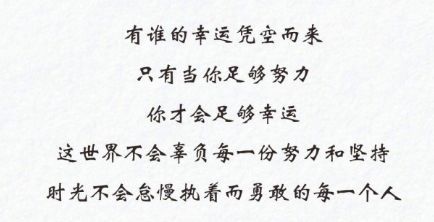 有谁的幸运凭空而来
只有当你足够努力
你才会足够幸运
这世界不会辜负每一份努力和坚持
时光不会怠慢执着而勇敢的每一个人